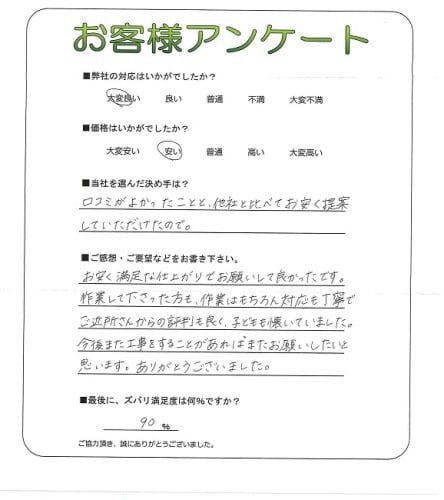 お客様アンケート
■弊社の対応はいかがでしたか?
大変良い 良い 普通 不満 大変不満
■価格はいかがでしたか?
大変安い 安い 普通 高い 大変高い
■当社を選んだ決め手は?
口コミがよかったことと、他社と比べてお安く提案
していただけたので。
■ご感想・ご要望などをお書き下さい。
お安く満足な仕上がりでお願いして良かったです。
作業して下さった方も、作業はもちろん対応も丁寧で
ご近所さんからの評判も良く、子どもも懐いていました。
今後また工事をすることがあればまたお願いしたいと
思います。ありがとうございました。
■最後に、ズバリ満足度は何%ですか?
90 %
ご協力頂き、誠にありがとうございました。